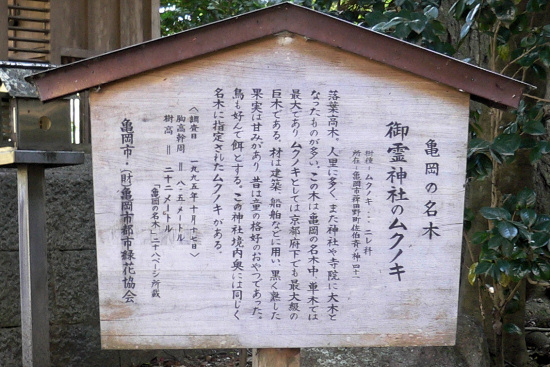 亀岡の名木
御霊神社のムクノキ
樹種‥ムクノキ‥ニレ科
所在‥亀岡市稗田野町佐伯青ノ四十一
落葉高木。人里に多く、また神社や寺院に大木と
なったものが多い。この木は亀岡の名木中、単木では
最大でありムクノキとしては京都府下でも最大級の
巨木である。材は建築、船舶などに用い、黒く熟した
果実は甘みがあり、昔は童の格好のおやつであった。
鳥も好んで餌とする。この神社境内奥には同じく
名木に指定されたムクノキがある
〈調査日 一九九五年十月十七日〉
胸高幹周 ＝ 八・五メートル
樹高 ＝ 二十二メートル
「亀岡の名木」二十八ページ所載
亀岡市・(財)亀岡市都市緑花協会